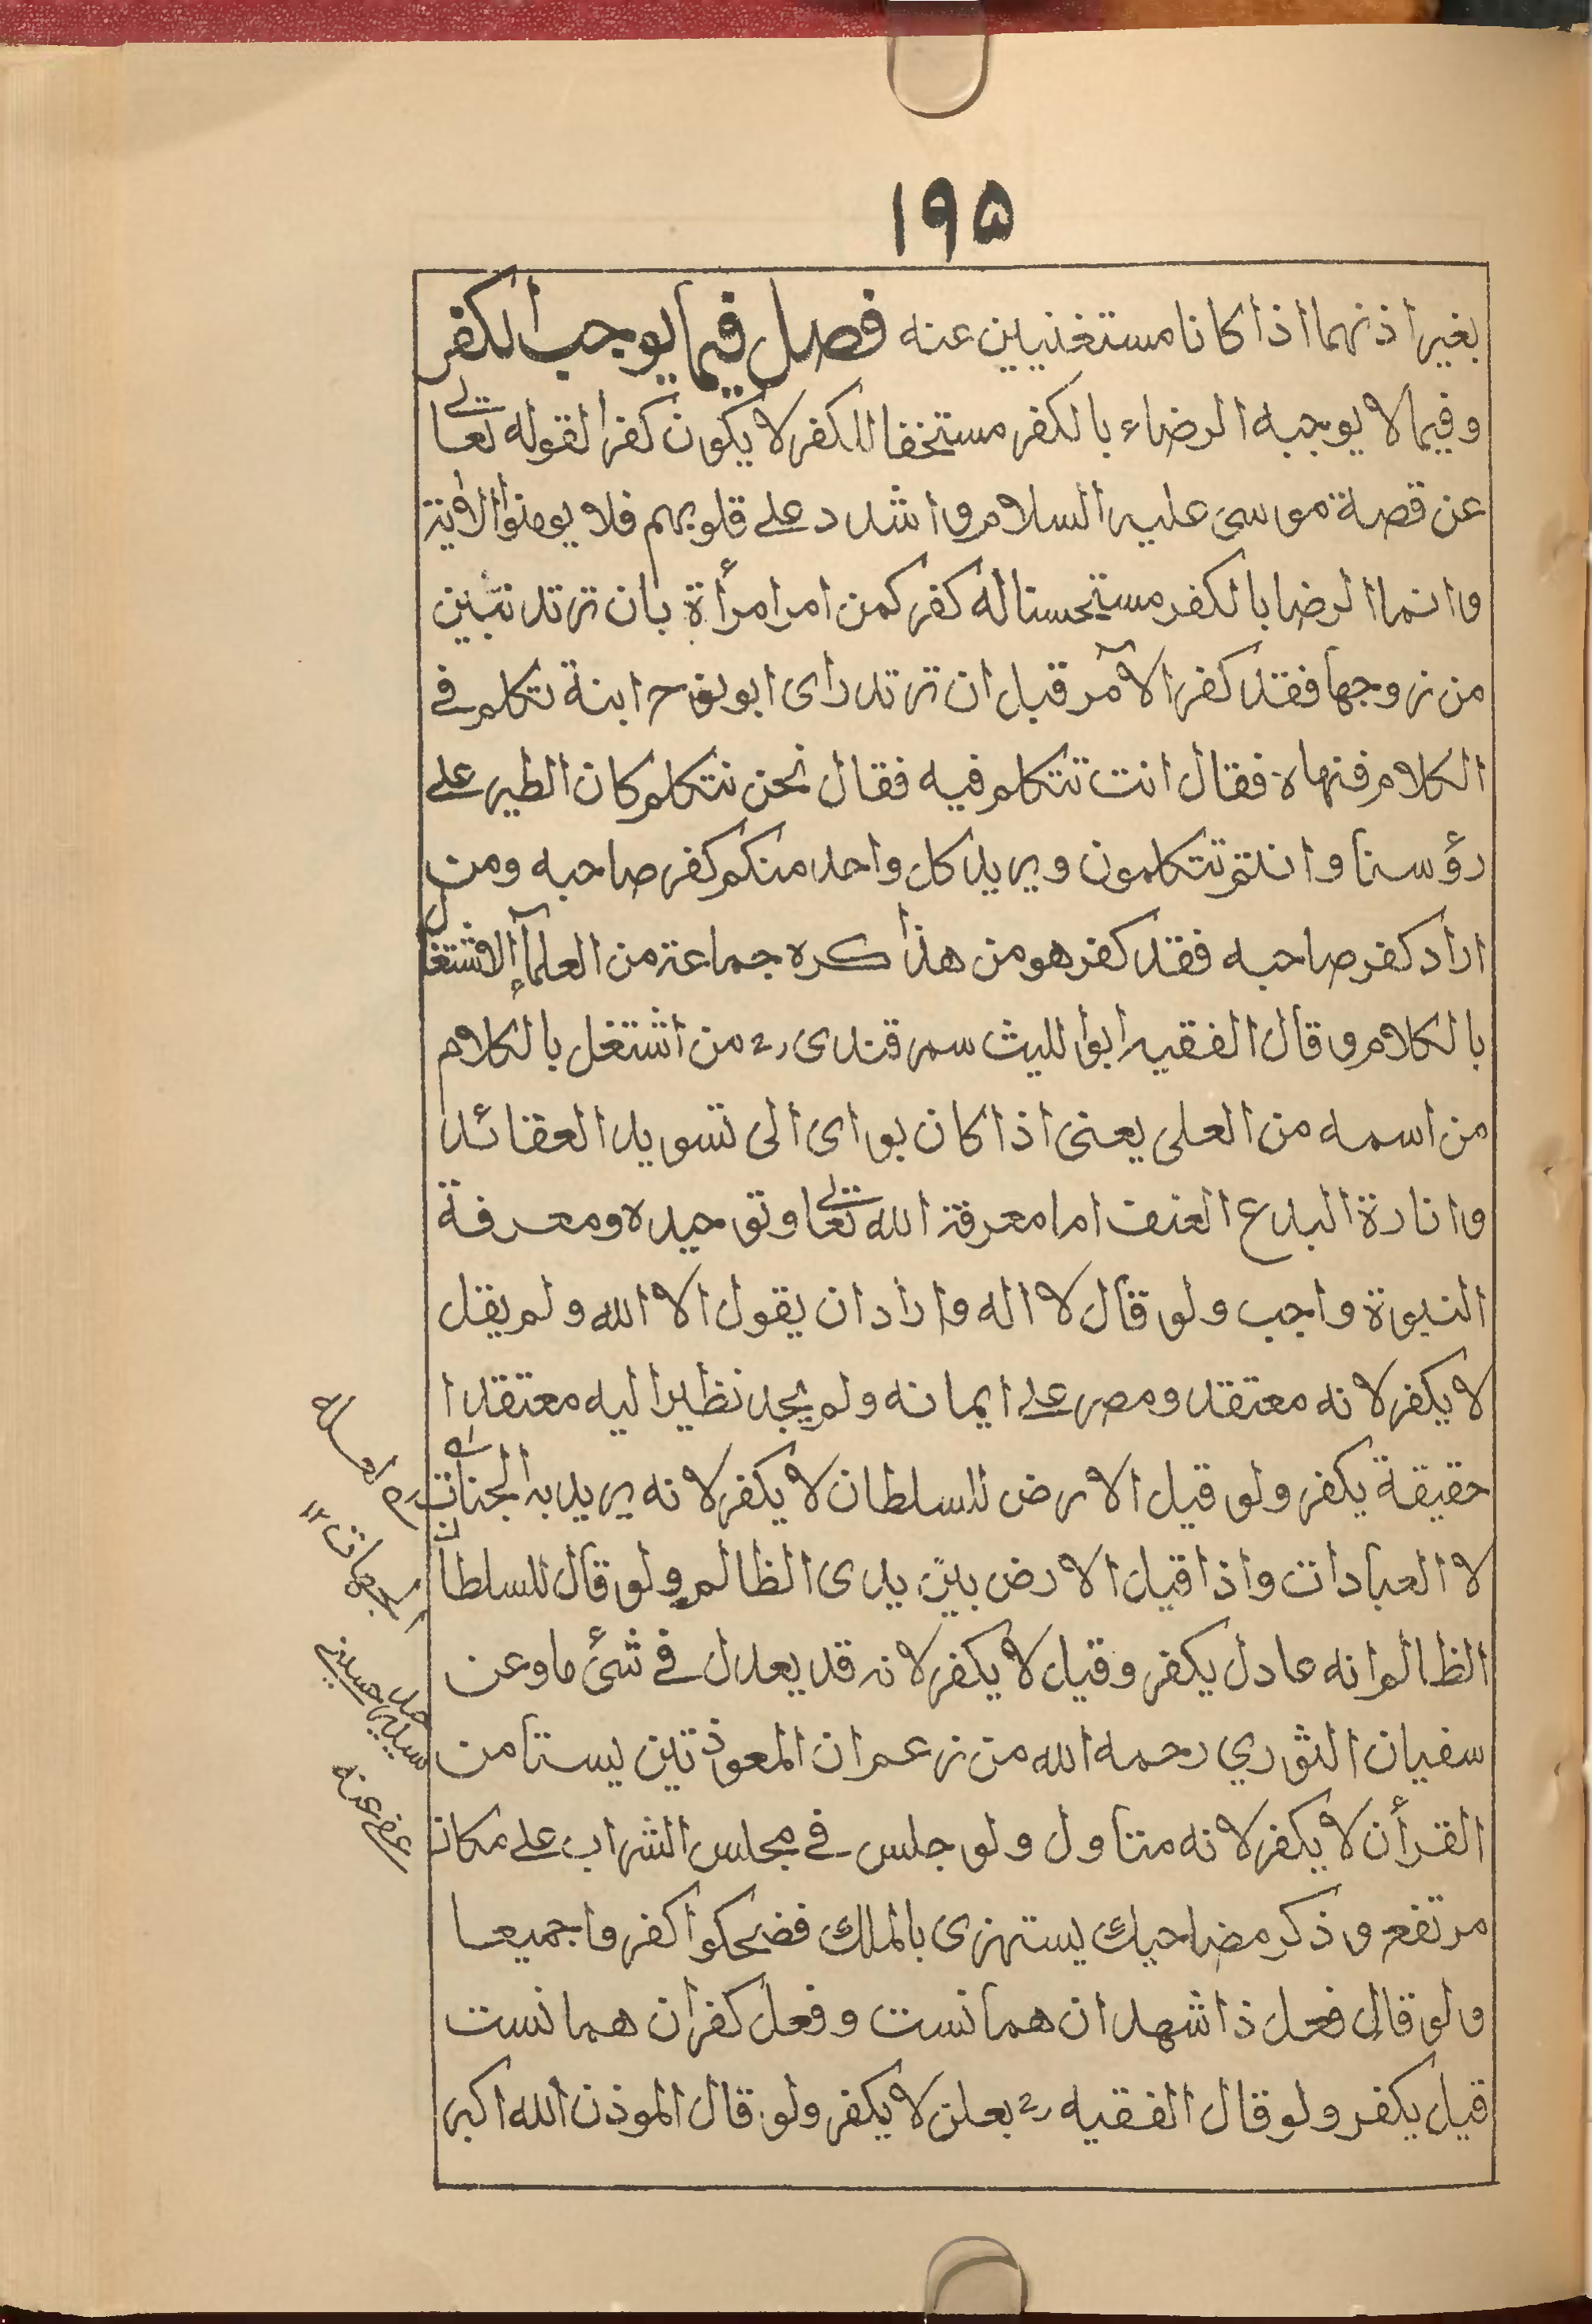 ۱۹۵
بغير اذنهما اذا كانا مستغنيين عنه فصل فيما يوجب الكفر
وفيما لا يوجبه الرضاء بالكفر مستخفا للكفر لا يكون كفرا لقوله تعالى
عن قصة موسى عليه السلام واشدد على قلوبهم فلا يومنوا الاية
وانما الرضا بالكفر مستحسنا له كفر كمن امر امرأة بان ترتد تبين
من زوجها فقد كفر الآمر قبل ان ترتد راى ابو يوسف ح ابنة تكلم في
الكلام فنهاه فقال انت تتكلم فيه فقال نحن نتكلم كان الطير على
رؤسنا وانتم تتكلمون ويريد كل واحد منكم كفر صاحبه ومن
اراد كفر صاحبه فقد كفر هو من هذا كره جماعة من العلمآء الاشتغال
بالكلام وقال الفقيه ابو الليث سمرقندى رح من اشتغل بالكلام
من اسمه من العلى يعنى اذا كان يواى الى تسويد العقائد
وانارة البدع العنف اما معرفة الله تعالى وتوحيده ومعرفة
النبوة واجب ولو قال لا اله واراد ان يقول الا الله ولم يقل
لا يكفر لانه معتقد ومصر على ايمانه ولم يجد نظيرا ليه معتقدا
حقيقة يكفر ولو قيل الارض للسلطان لا يكفر لانه يريد به الجنات
لا العبادات واذا قيل الارض بين يدى الظالم ولو قال للسلطان
الظالم انه عادل يكفر وقيل لا يكفر لانه قد يعدل في شئ ما وعن
سفيان الثوري رحمه الله من زعم ان المعوذتين ليستا من
القرأن لا يكفر لانه متاول ولو جلس في مجلس الشراب على مكان
مرتفع وذكر مضاحيك يستهزى بالملك فضحكوا كفروا جميعا
ولو قال فعل ذا شهد ان همانست وفعل كفران همانست
قيل يكفر ولو قال الفقيه رح بعلن لا يكفر ولو قال الموذن الله اكبر
عفى عنه